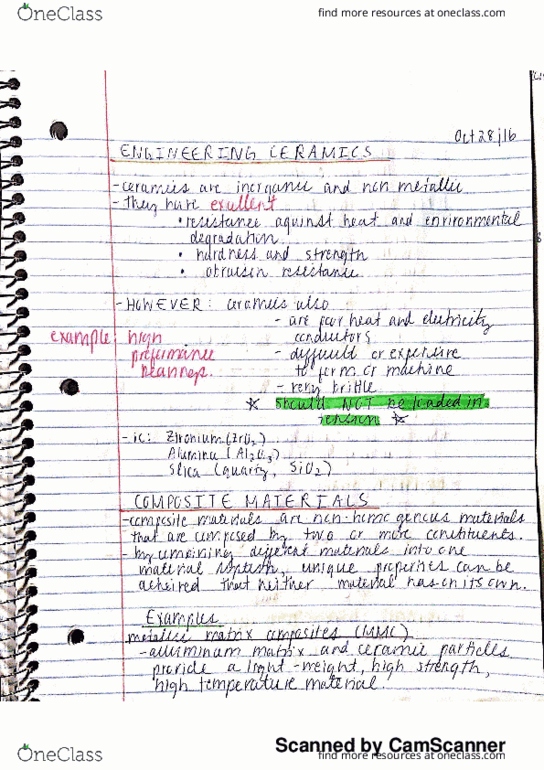 OneClass
find more resources at oneclass.com
Oct 28/16
ENGINEERING CERAMICS
- ceramics are inorganic and non metallic
- They have exellent
• resistance against heat and environmental
degradation
• hardness and strength
• abrasion resistance
- HOWEVER: ceramics also
- are poor heat and electricity
conductors
example: high
performance
- difficuld or expensive
to form or machine
- very brittle
☆ should NOT be loaded in
tension ☆
- ie: Zironium (ZrO₂)
Alumina (Al₂O₃)
Silica (quartz, SiO₂)
COMPOSITE MATERIALS
- composite materials are non-homogenous materials
that are composed by two or more constituents.
- by combining different materials into one
material system, unique properties can be
acheived that neither material has on its own.
Examples
metallic matrix composites (MMC)
- alluminum matrix and ceramic particles
provide a light-weight, high strength,
high temperature material.
Scanned by CamScanner
OneClass
find more resources at oneclass.com